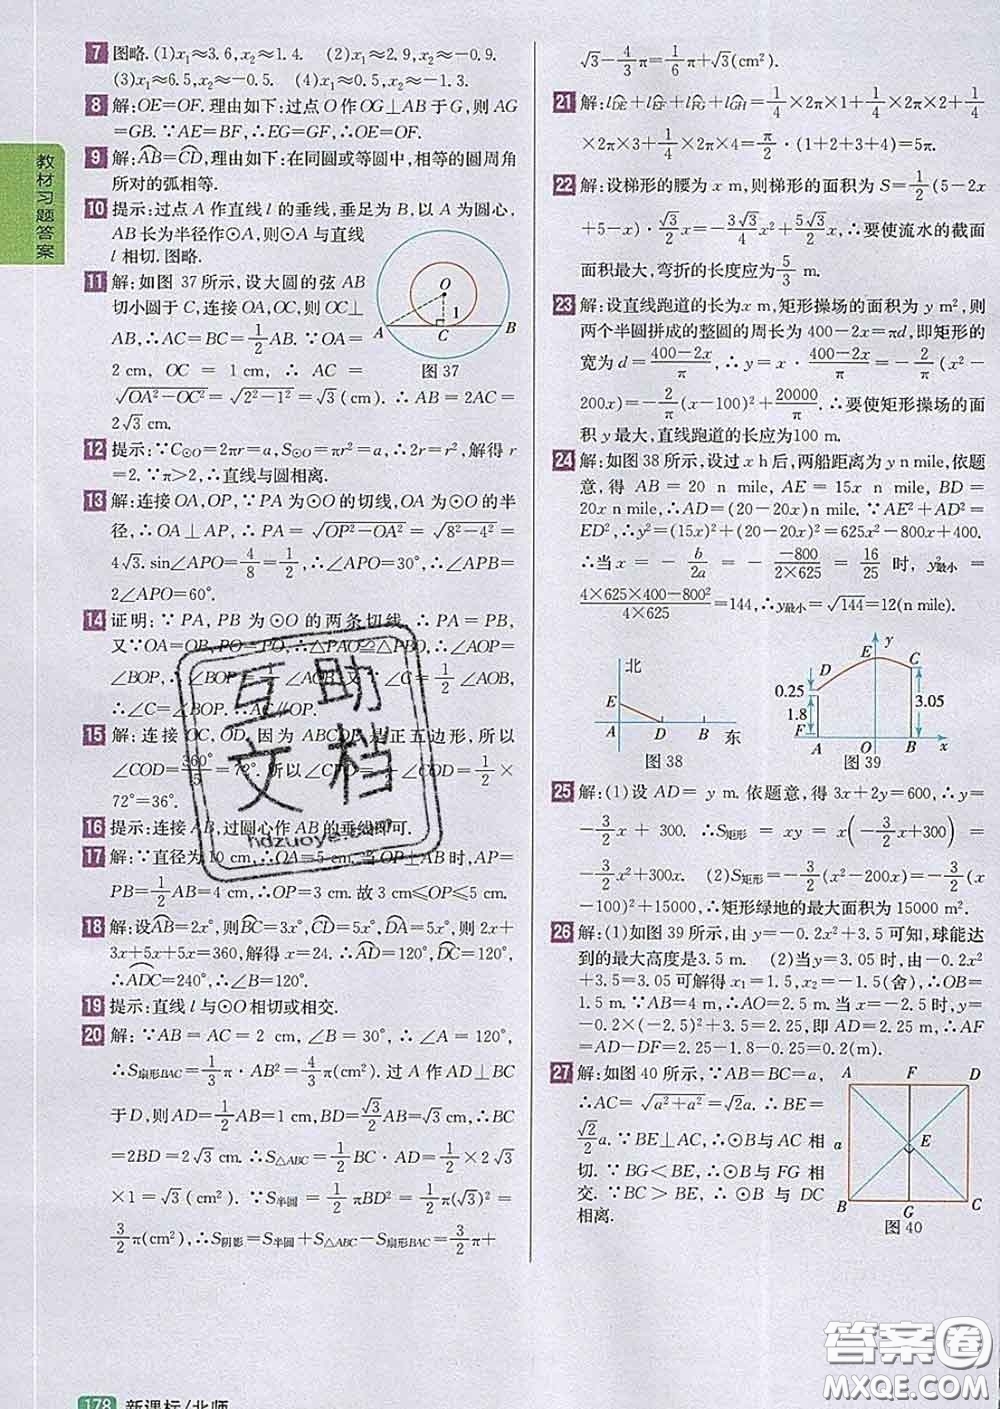 教材习题答案
7 图略.(1)x₁≈3.6,x₂≈1.4. (2)x₁≈2.9,x₂≈-0.9.
(3)x₁≈6.5,x₂≈-0.5. (4)x₁≈0.3,x₂≈-1.3.
8 解:OE=OF.理由如下:过点O作OG⊥AB于G,则AG
=GB.∵AE=BF,∴EG=GF.∴OE=OF.
9 解:AB=CD,理由如下:在同圆或等圆中,相等的圆周角
所对的弧相等.
10 提示:过点A作直线l的垂线,垂足为B,以A为圆心,
AB长为半径作⊙A,则⊙A与直线
l相切.图略.
11 解:如图37所示,设大圆的弦AB
切小圆于C,连接OA,OC,则OC⊥
AB,∴AC=BC=1/2AB.∵OA=
2 cm, OC = 1 cm, ∴ AC =
√(OA²-OC²)=√(2²-1²)=√3(cm).∴AB=2AC=
2√3 cm.
O
1
A
C
B
图37
12 提示:∵C⊙O=2πr=a,S⊙O=πr²=a,∴2r=r²,解得r
=2.∵π>2,∴直线与圆相离.
13 解:连接OA,OP,∵PA为⊙O的切线,OA为⊙O的半
径,∴OA⊥AP,∴PA=√(OP²-OA²)=√(8²-4²)=
4√3.sin∠APO=4/8=1/2,∴∠APO=30°,∴∠APB=
2∠APO=60°.
14 证明:∵PA,PB为⊙O的两条切线,∴PA=PB,
又∵OA=OB,PO=PO,∴△PAO≌△PBO,∴∠AOP=
∠BOP,∴∠BOP=1/2∠AOB.又∵∠C=1/2∠AOB,
∴∠C=∠BOP,∴AC∥OP.
15 解:连接OC,OD.因为ABCDE是正五边形,所以
∠COD=360°/5=72°.所以∠CFD=1/2∠COD=1/2×
72°=36°.
16 提示:连接AB,过圆心作AB的垂线即可.
17 解:∵直径为10 cm,∴OA=5 cm.当OP⊥AB时,AP=
PB=1/2AB=4 cm,∴OP=3 cm.故3 cm≤OP≤5 cm.
18 解:设AB=2x°,则BC=3x°,CD=5x°,DA=5x°,则2x+
3x+5x+5x=360,解得x=24.∴AD=120°,
∴ADC=240°,∴∠B=120°.
19 提示:直线l与⊙O相切或相交.
20 解:∵AB=AC=2 cm,∠B=30°,∴∠A=120°,
∴S扇形BAC=1/3π·AB²=4/3π(cm²).过A作AD⊥BC
于D,则AD=1/2AB=1 cm,BD=√3/2AB=√3 cm,∴BC
=2BD=2√3 cm,∴S△ABC=1/2BC·AD=1/2×2√3
×1=√3(cm²).∵S半圆=1/2πBD²=1/2π(√3)²=
3/2π(cm²),∴S阴影=S半圆+S△ABC-S扇形BAC=3/2π+
√3-4/3π=1/6π+√3(cm²).
21 解:lDE+lEF+lFG+lGH=1/4×2π×1+1/4×2π×2+1/4
×2π×3+1/4×2π×4=1/4·2π·(1+2+3+4)=5π.
22 解:设梯形的腰为x m,则梯形的面积为S=1/2(5-2x
+5-x)·√3/2x=-3√3/4x²+5√3/2x,∴要使流水的截面
面积最大,弯折的长度应为5/3 m.
23 解:设直线跑道的长为x m,矩形操场的面积为y m²,则
两个半圆拼成的整圆的周长为400-2x=πd,即矩形的
宽为d=(400-2x)/π,∴y=x·(400-2x)/π=-2/π(x²-
200x)=-2/π(x-100)²+20000/π.∴要使矩形操场的面
积y最大,直线跑道的长应为100 m.
24 解:如图38所示,设过x h后,两船距离为y n mile,依题
意,得 AB = 20 n mile, AE = 15x n mile, BD =
20x n mile,∴AD=(20-20x)n mile.∵AE²+AD²=
ED²,∴y²=(15x)²+(20-20x)²=625x²-800x+400.
∴当x=-b/2a=-(-800)/(2×625)=16/25时,y²最小=
(4×625×400-800²)/(4×625)=144,∴y最小=√144=12(n mile).
北
E
A
D
B
东
图38
y
E
C
D
0.25
3.05
1.8
F
A
O
B
x
图39
25 解:(1)设AD=y m.依题意,得3x+2y=600,∴y=
-3/2x+300.∴S矩形=xy=x(-3/2x+300)=
-3/2x²+300x. (2)S矩形=-3/2(x²-200x)=-3/2(x
-100)²+15000,∴矩形绿地的最大面积为15000 m².
26 解:(1)如图39所示,由y=-0.2x²+3.5可知,球能达
到的最大高度是3.5 m. (2)当y=3.05时,由-0.2x²
+3.5=3.05可解得x₁=1.5,x₂=-1.5(舍),∴OB=
1.5 m.∵AB=4 m,∴AO=2.5 m.当x=-2.5时,y=
-0.2×(-2.5)²+3.5=2.25,即AD=2.25 m,∴AF
=AD-DF=2.25-1.8-0.25=0.2(m).
27 解:如图40所示,∵AB=BC=a,
∴AC=√(a²+a²)=√2a.∴BE=
√2/2a.∵BE⊥AC,∴⊙B与AC相
切.∵BG<BE,∴⊙B与FG相
交.∵BC>BE,∴⊙B与DC
相离.
A
F
D
a
E
B
G
C
图40
互助
文档
hdzuoye.com
178 新课标/北师
答案圈
MXQE.COM